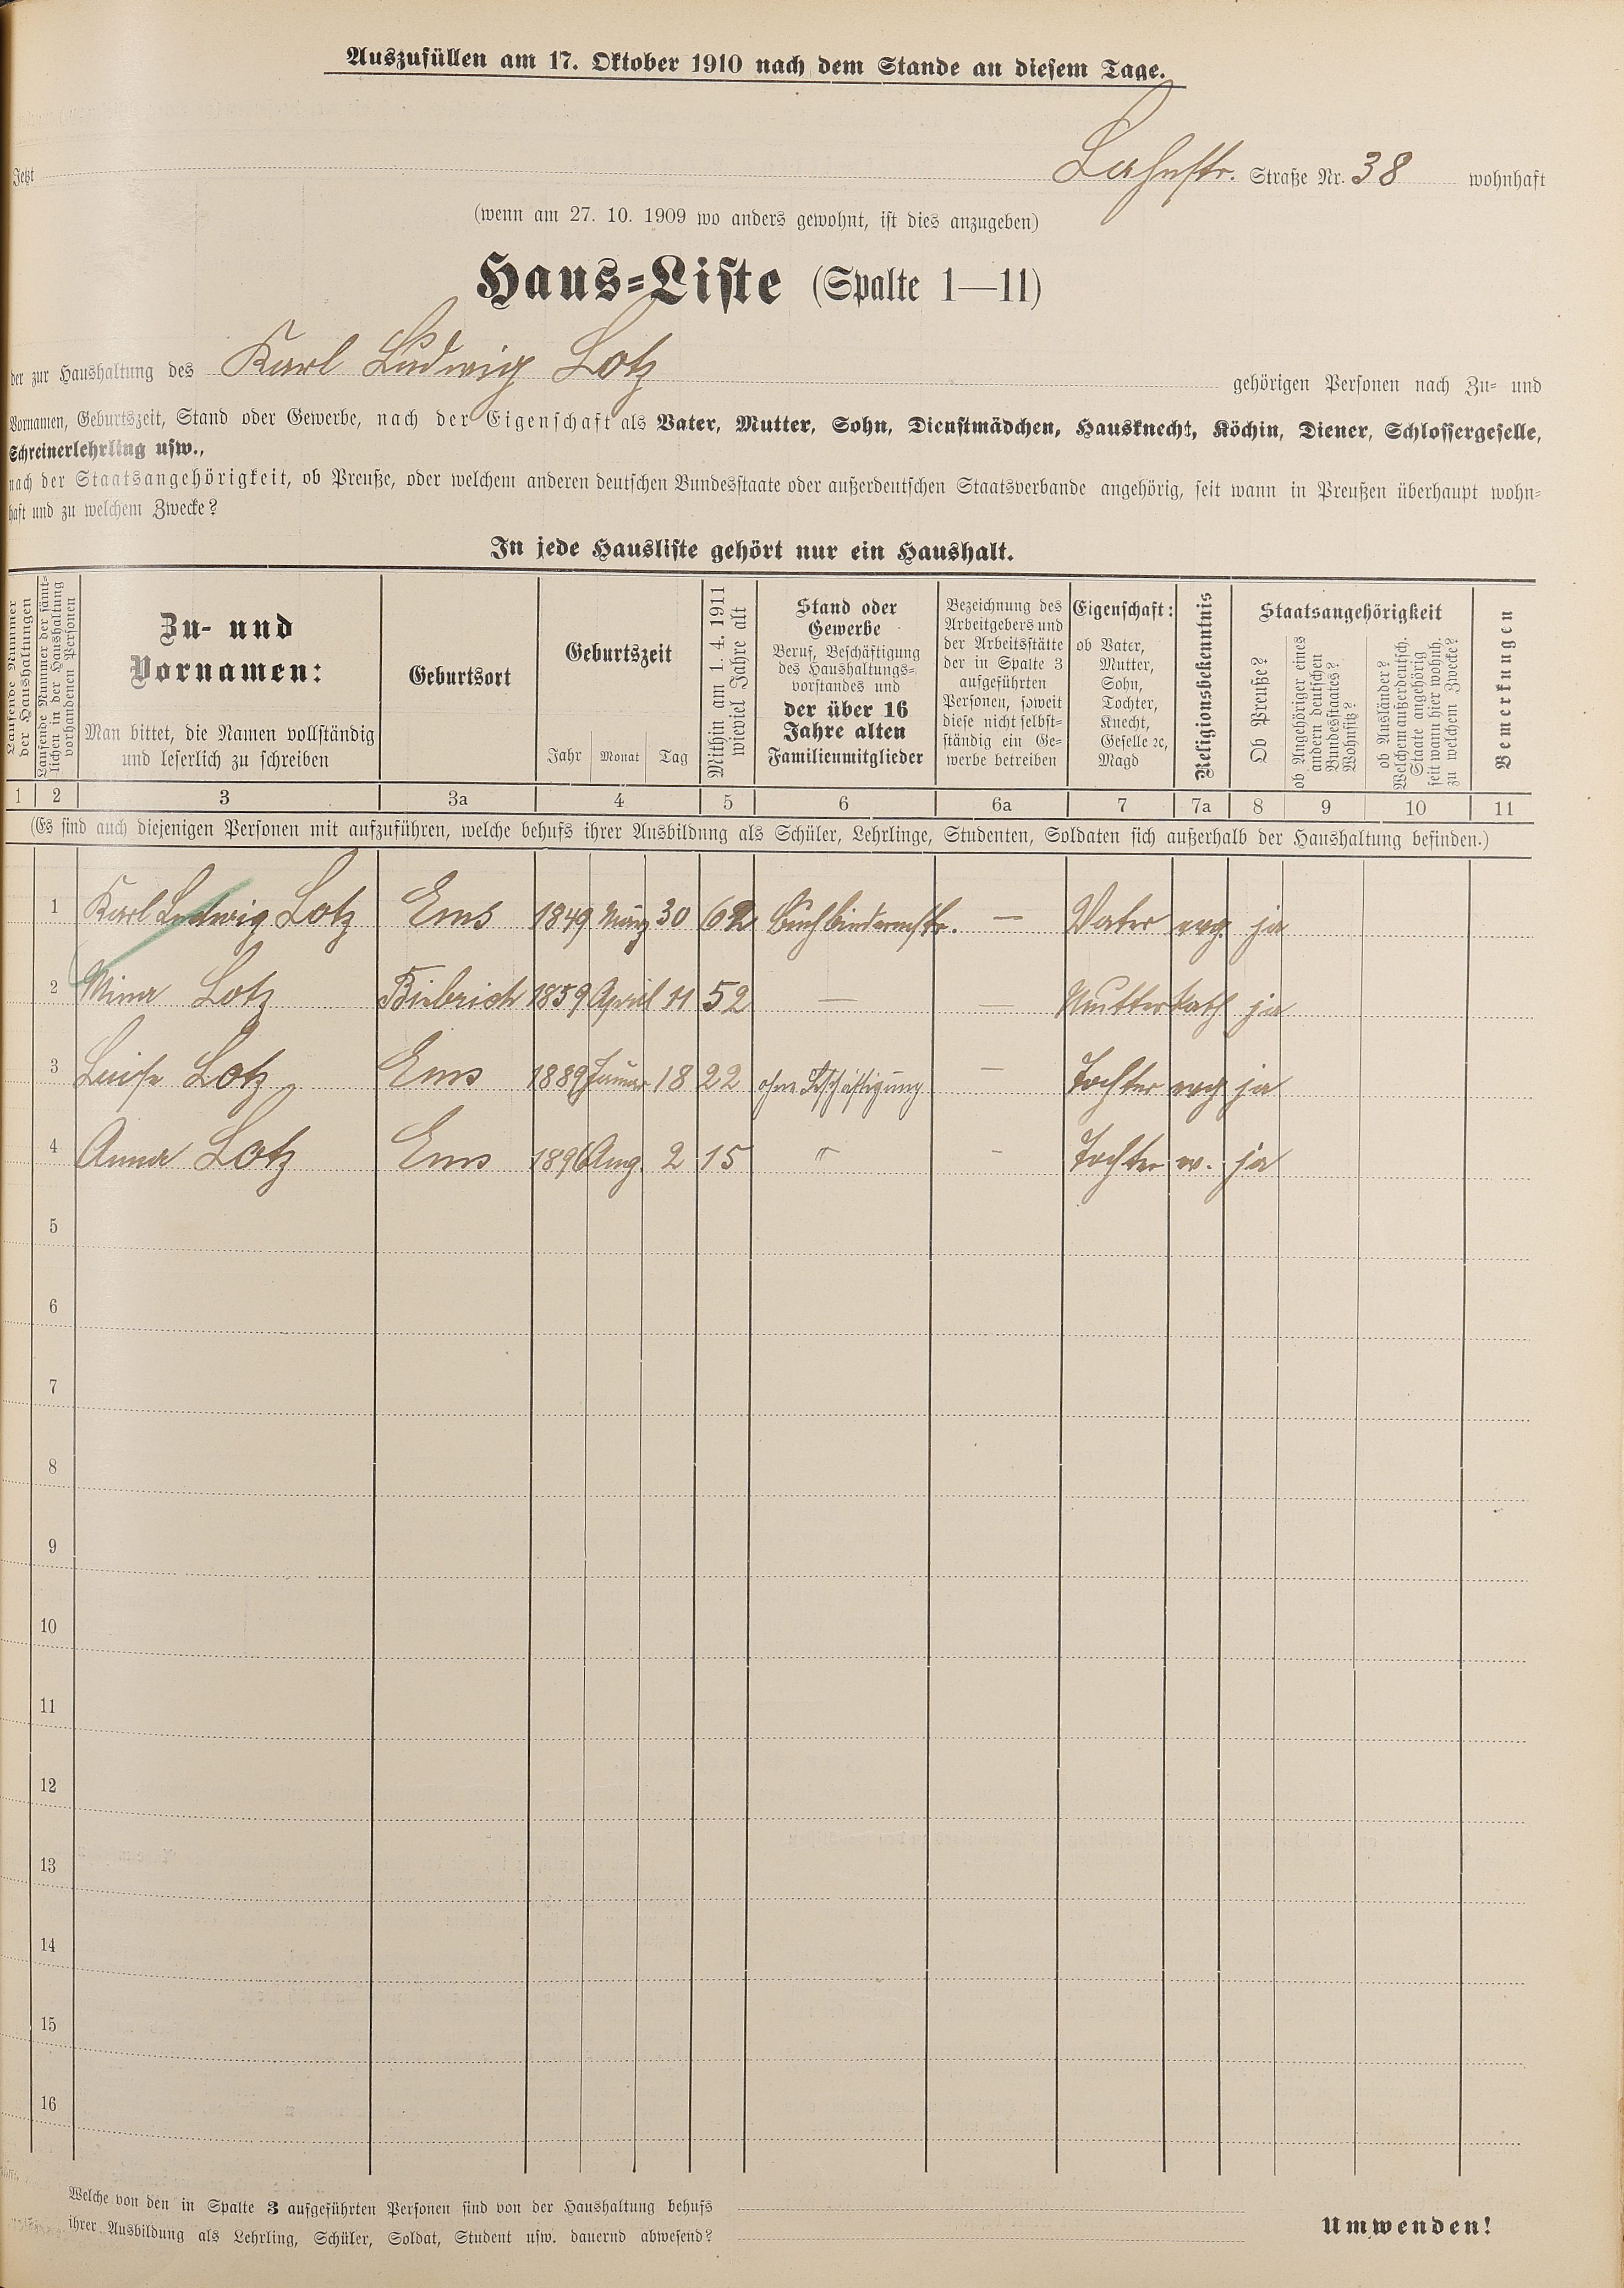 Auszufüllen am 17. Oktober 1910 nach dem Stande an diesem Tage.
Jetzt Lahnstr. Straße Nr. 38 wohnhaft
(wenn am 27. 10. 1909 wo anders gewohnt, ist dies anzugeben)
Haus-Liste (Spalte 1—11)
der zur Haushaltung des Karl Ludwig Lotz gehörigen Personen nach Zu- und
Vornamen, Geburtszeit, Stand oder Gewerbe, nach der Eigenschaft als Vater, Mutter, Sohn, Dienstmädchen, Hausknecht, Köchin, Diener, Schlossergeselle,
Schreinerlehrling usw.,
nach der Staatsangehörigkeit, ob Preuße, oder welchem anderen deutschen Bundesstaate oder außerdeutschen Staatsverbande angehörig, seit wann in Preußen überhaupt wohn-
haft und zu welchem Zwecke?
In jede Hausliste gehört nur ein Haushalt.
Laufende Nummer
der Haushaltungen
Laufende Nummer der sämt-
lichen in der Haushaltung
vorhandenen Personen
Zu- und
Vornamen:
Man bittet, die Namen vollständig
und leserlich zu schreiben
Geburtsort
Geburtszeit
Jahr Monat Tag
Mithin am 1. 4. 1911
wieviel Jahre alt
Stand oder
Gewerbe
Beruf, Beschäftigung
des Haushaltungs-
vorstandes und
der über 16
Jahre alten
Familienmitglieder
Bezeichnung des
Arbeitgebers und
der Arbeitsstätte
der in Spalte 3
aufgeführten
Personen, soweit
diese nicht selbst-
ständig ein Ge-
werbe betreiben
Eigenschaft:
ob Vater,
Mutter,
Sohn,
Tochter,
Knecht,
Geselle ꝛc,
Magd
Religionsbekenntnis
Staatsangehörigkeit
Ob Preuße?
ob Angehöriger eines
andern deutschen
Bundesstaates?
Wohnsitz?
ob Ausländer?
Welchem außerdeutsch.
Staate angehörig
seit wann hier wohnh.
zu welchem Zwecke?
Bemerkungen
1 2 3 3a 4 5 6 6a 7 7a 8 9 10 11
(Es sind auch diejenigen Personen mit aufzuführen, welche behufs ihrer Ausbildung als Schüler, Lehrlinge, Studenten, Soldaten sich außerhalb der Haushaltung befinden.)
1 Karl Ludwig Lotz Ems 1849 März 30 62 Buchbindermstr. — Vater evg. ja
2 Mina Lotz Biebrich 1859 April 11 52 — — Mutter kath ja
3 Luise Lotz Ems 1889 Januar 18 22 ohne Beschäftigung — Tochter evg ja
4 Anna Lotz Ems 1896 Aug 2 15 " - Tochter ev. ja
5
6
7
8
9
10
11
12
13
14
15
16
Welche von den in Spalte 3 aufgeführten Personen sind von der Haushaltung behufs
ihrer Ausbildung als Lehrling, Schüler, Soldat, Student usw. dauernd abwesend?
Umwenden!